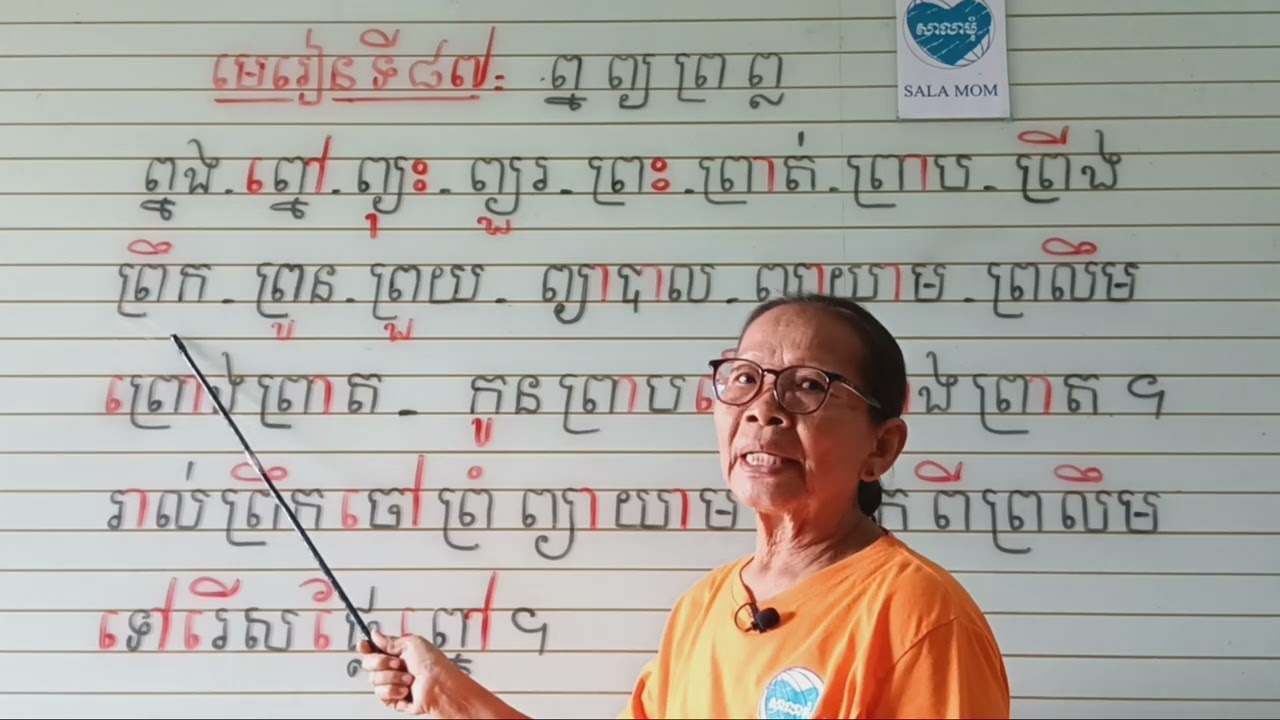 មេរៀនទី៨៧: ព្ន ព្យ ព្រ ព្ល
សាលាមុំ
SALA MOM
ព្នង - ព្នៅ - ព្យុះ - ព្យួរ - ព្រះ - ព្រាត់ - ព្រាប - ព្រីង
ព្រឹក - ព្រូន - ព្រួយ - ព្យាបាល - ព្យាយាម - ព្រលឹម
ព្រោងព្រាត - កូនព្រាប ងព្រាត ។
រាល់ព្រឹកចៅព្រំព្យាយាម ពីព្រលឹម
ទៅរើស ព្នៅ ។